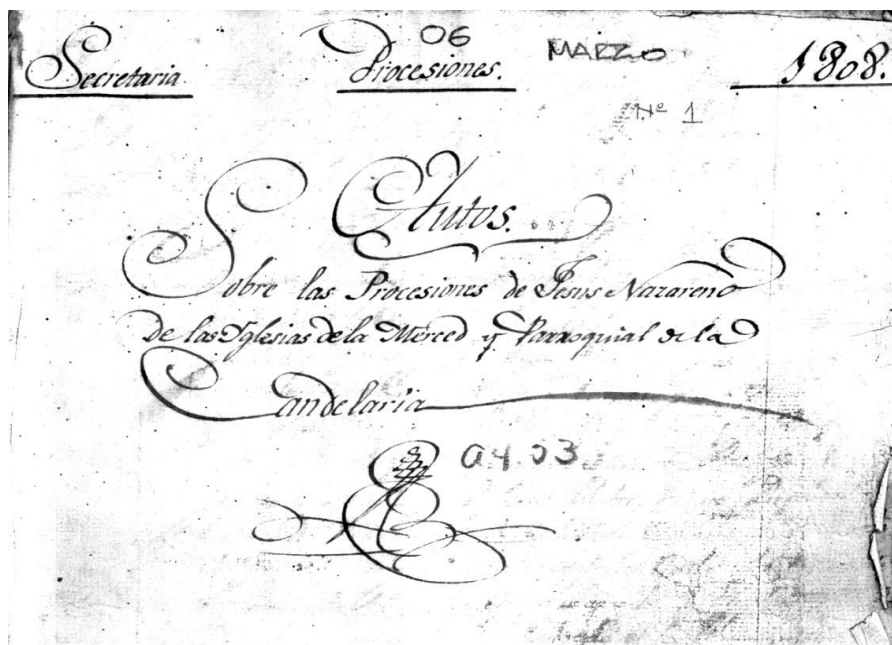 06
Secretaria. Procesiones. MARZO 1808.
Nº 1
Autos.
Sobre las Procesiones de Jesus Nazareno
de las Yglesias de la Merced y Parroquial de la
Candelaria
04.03